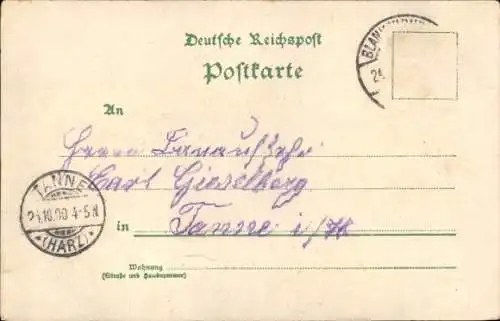 Deutsche Reichspost
Postkarte
BLAN
24.
An
Herrn
Carl Gieselberg
TANNE
24.10.00 4-5 N
*(HARZ)*
in Tanne i/H
Wohnung
(Straße und Hausnummer)